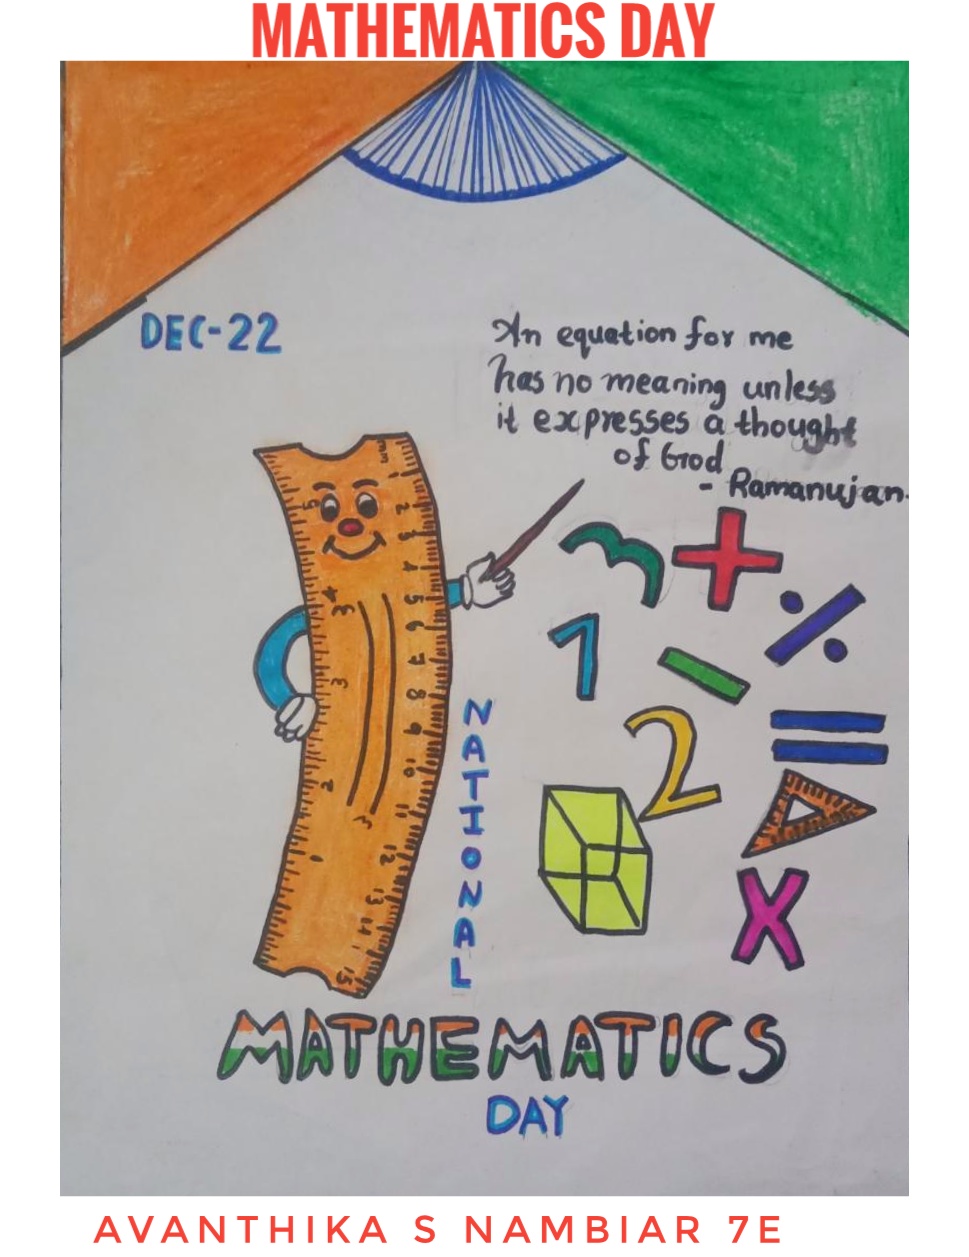 MATHEMATICS DAY
DEC-22
An equation for me
has no meaning unless
it expresses a thought
of God
- Ramanujan.
mm
1
2
3
4
5
6
7
8
9
10
11
12
13
14
15
5
4
3
2
1
+
%
1
-
2
=
X
NATIONAL
MATHEMATICS
DAY
AVANTHIKA S NAMBIAR 7E